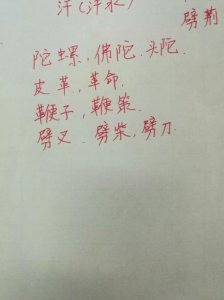 汗(汗水)
劈荆
陀螺,佛陀,头陀.
皮革,革命.
鞭子,鞭策.
劈叉.劈柴,劈刀.